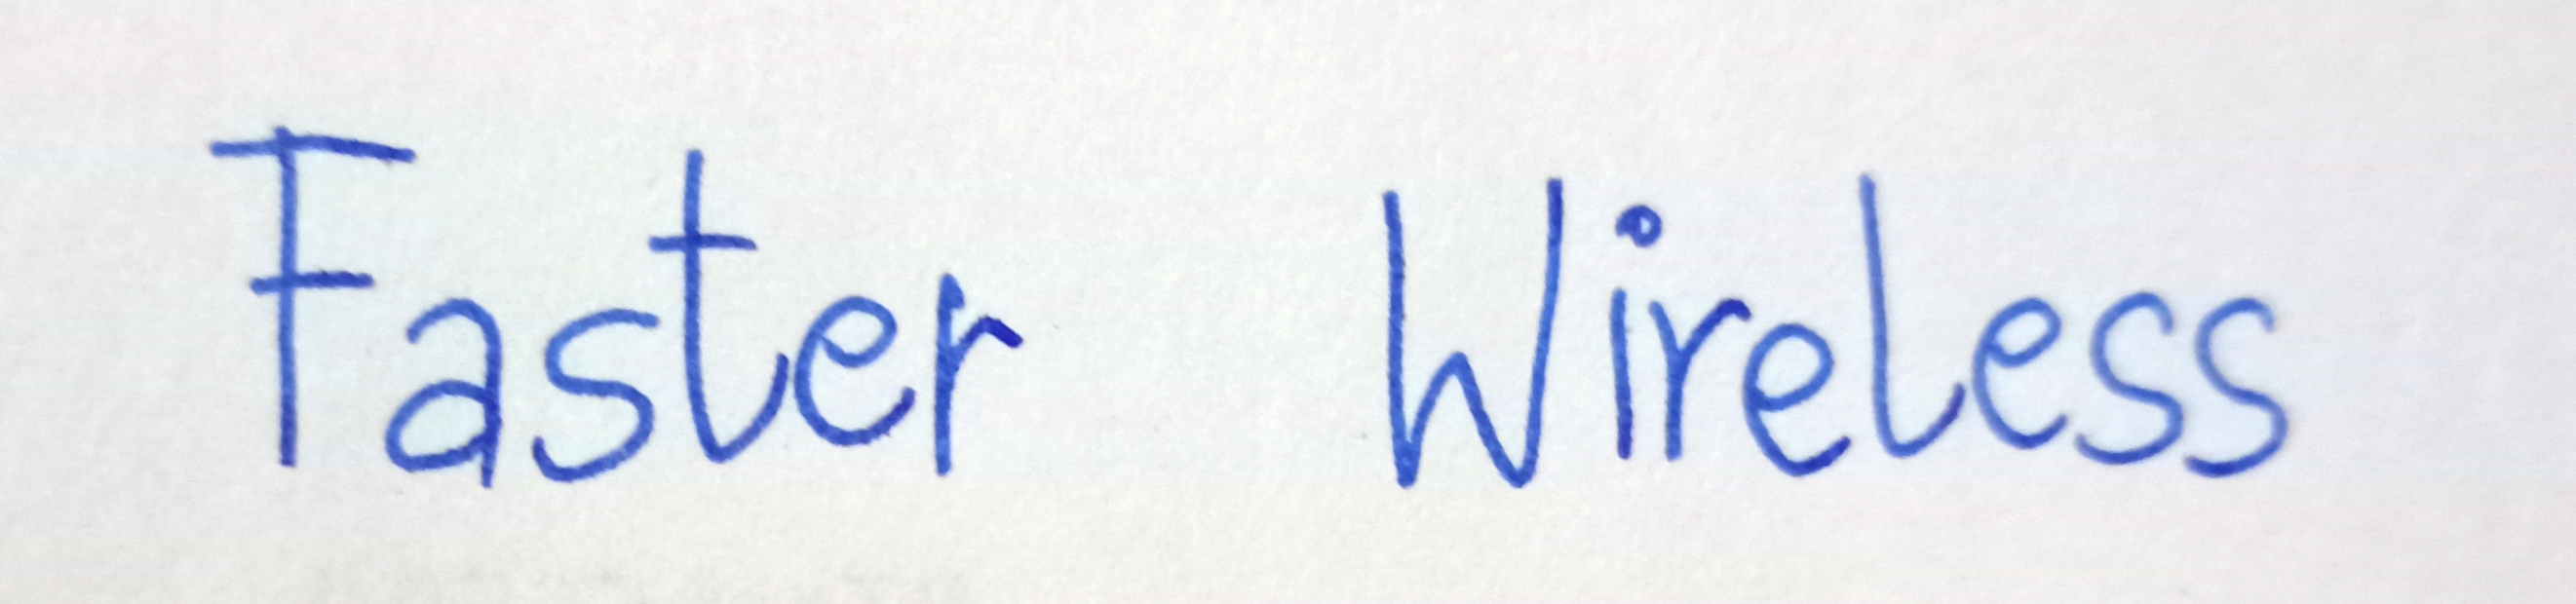 Faster Wireless